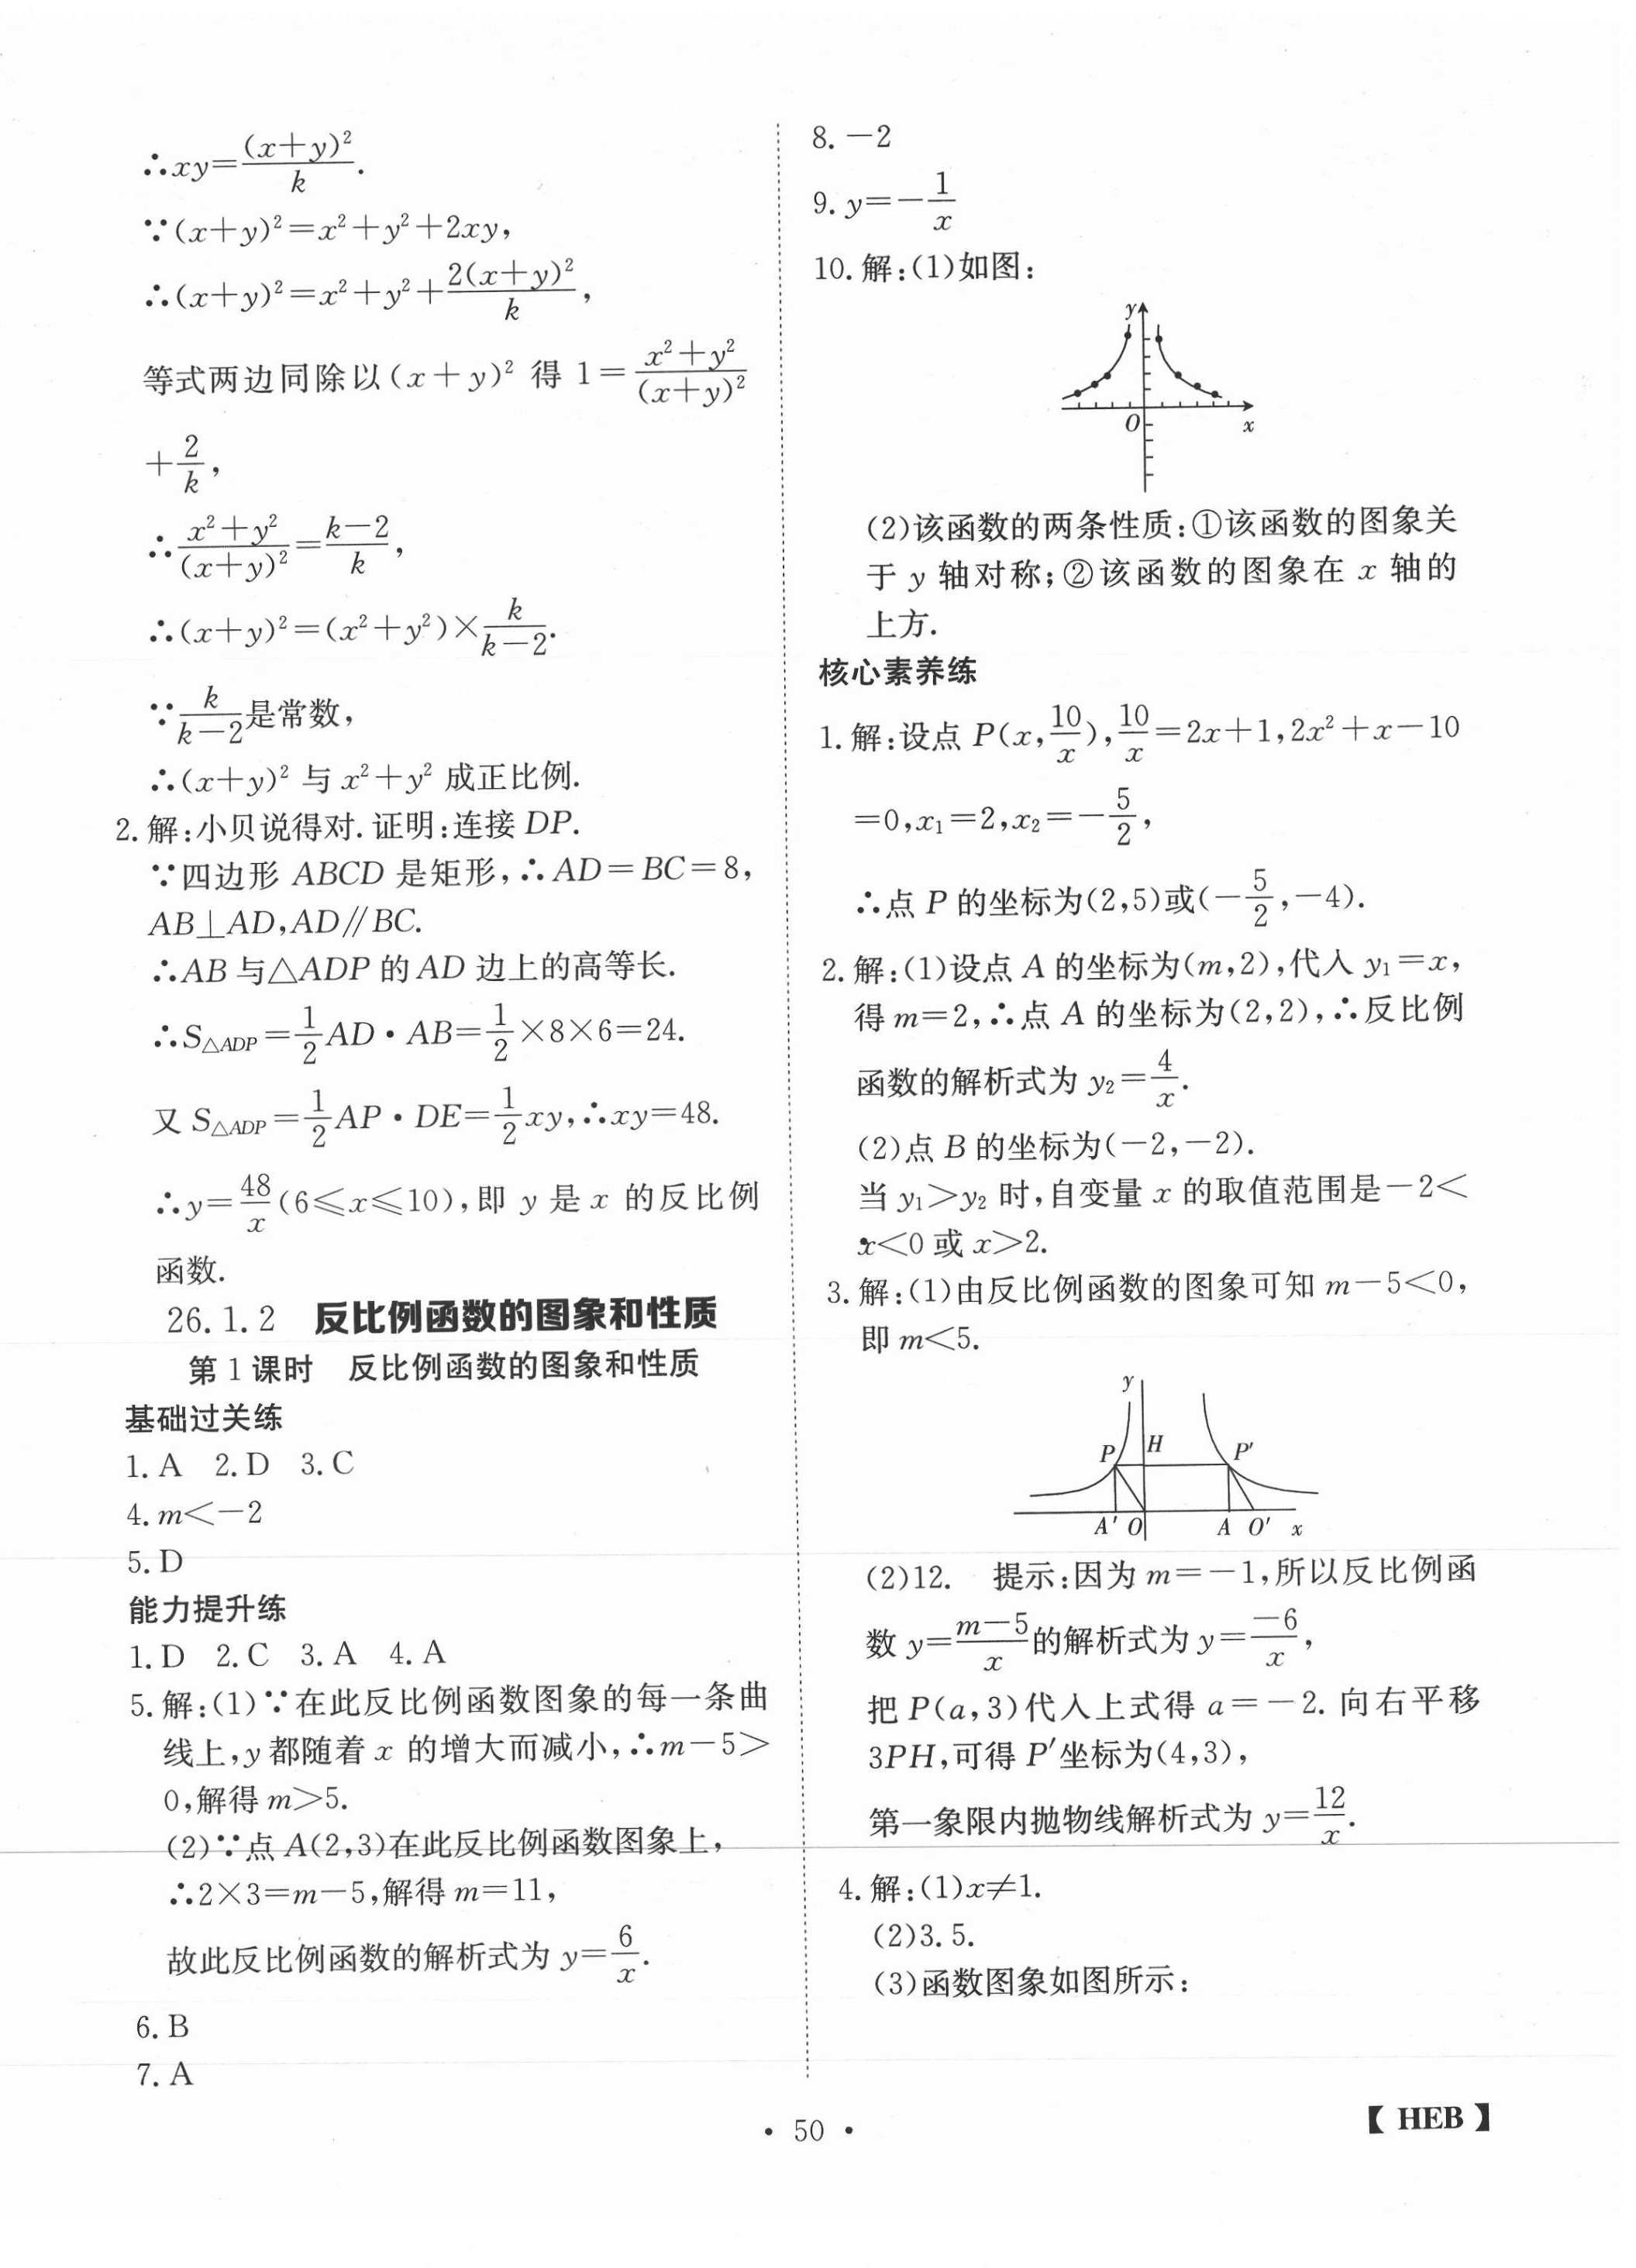 ∴xy=(x+y)²/k.
∵(x+y)²=x²+y²+2xy,
∴(x+y)²=x²+y²+2(x+y)²/k,
等式两边同除以(x+y)² 得 1=(x²+y²)/(x+y)²
+2/k,
∴(x²+y²)/(x+y)²=(k-2)/k,
∴(x+y)²=(x²+y²)×k/(k-2).
∵k/(k-2)是常数,
∴(x+y)² 与 x²+y² 成正比例.
2. 解:小贝说得对. 证明:连接 DP.
∵四边形 ABCD 是矩形,∴AD=BC=8,
AB⊥AD,AD∥BC.
∴AB 与△ADP 的 AD 边上的高等长.
∴S△ADP=1/2AD·AB=1/2×8×6=24.
又 S△ADP=1/2AP·DE=1/2xy,∴xy=48.
∴y=48/x(6≤x≤10),即 y 是 x 的反比例
函数.
26.1.2 反比例函数的图象和性质
第 1 课时 反比例函数的图象和性质
基础过关练
1. A 2. D 3. C
4. m<-2
5. D
能力提升练
1. D 2. C 3. A 4. A
5. 解:(1)∵在此反比例函数图象的每一条曲
线上,y 都随着 x 的增大而减小,∴m-5>
0,解得 m>5.
(2)∵点 A(2,3)在此反比例函数图象上,
∴2×3=m-5,解得 m=11,
故此反比例函数的解析式为 y=6/x.
6. B
7. A
8. -2
9. y=-1/x
10. 解:(1)如图:
y
O
x
(2)该函数的两条性质:①该函数的图象关
于 y 轴对称;②该函数的图象在 x 轴的
上方.
核心素养练
1. 解:设点 P(x,10/x),10/x=2x+1,2x²+x-10
=0,x₁=2,x₂=-5/2,
∴点 P 的坐标为(2,5)或(-5/2,-4).
2. 解:(1)设点 A 的坐标为(m,2),代入 y₁=x,
得 m=2,∴点 A 的坐标为(2,2),∴反比例
函数的解析式为 y₂=4/x.
(2)点 B 的坐标为(-2,-2).
当 y₁>y₂ 时,自变量 x 的取值范围是-2<
x<0 或 x>2.
3. 解:(1)由反比例函数的图象可知 m-5<0,
即 m<5.
y
P H P'
A' O A O' x
(2)12. 提示:因为 m=-1,所以反比例函
数 y=(m-5)/x的解析式为 y=-6/x,
把 P(a,3)代入上式得 a=-2. 向右平移
3PH,可得 P'坐标为(4,3),
第一象限内抛物线解析式为 y=12/x.
4. 解:(1)x≠1.
(2)3.5.
(3)函数图象如图所示:
· 50 ·
【HEB】